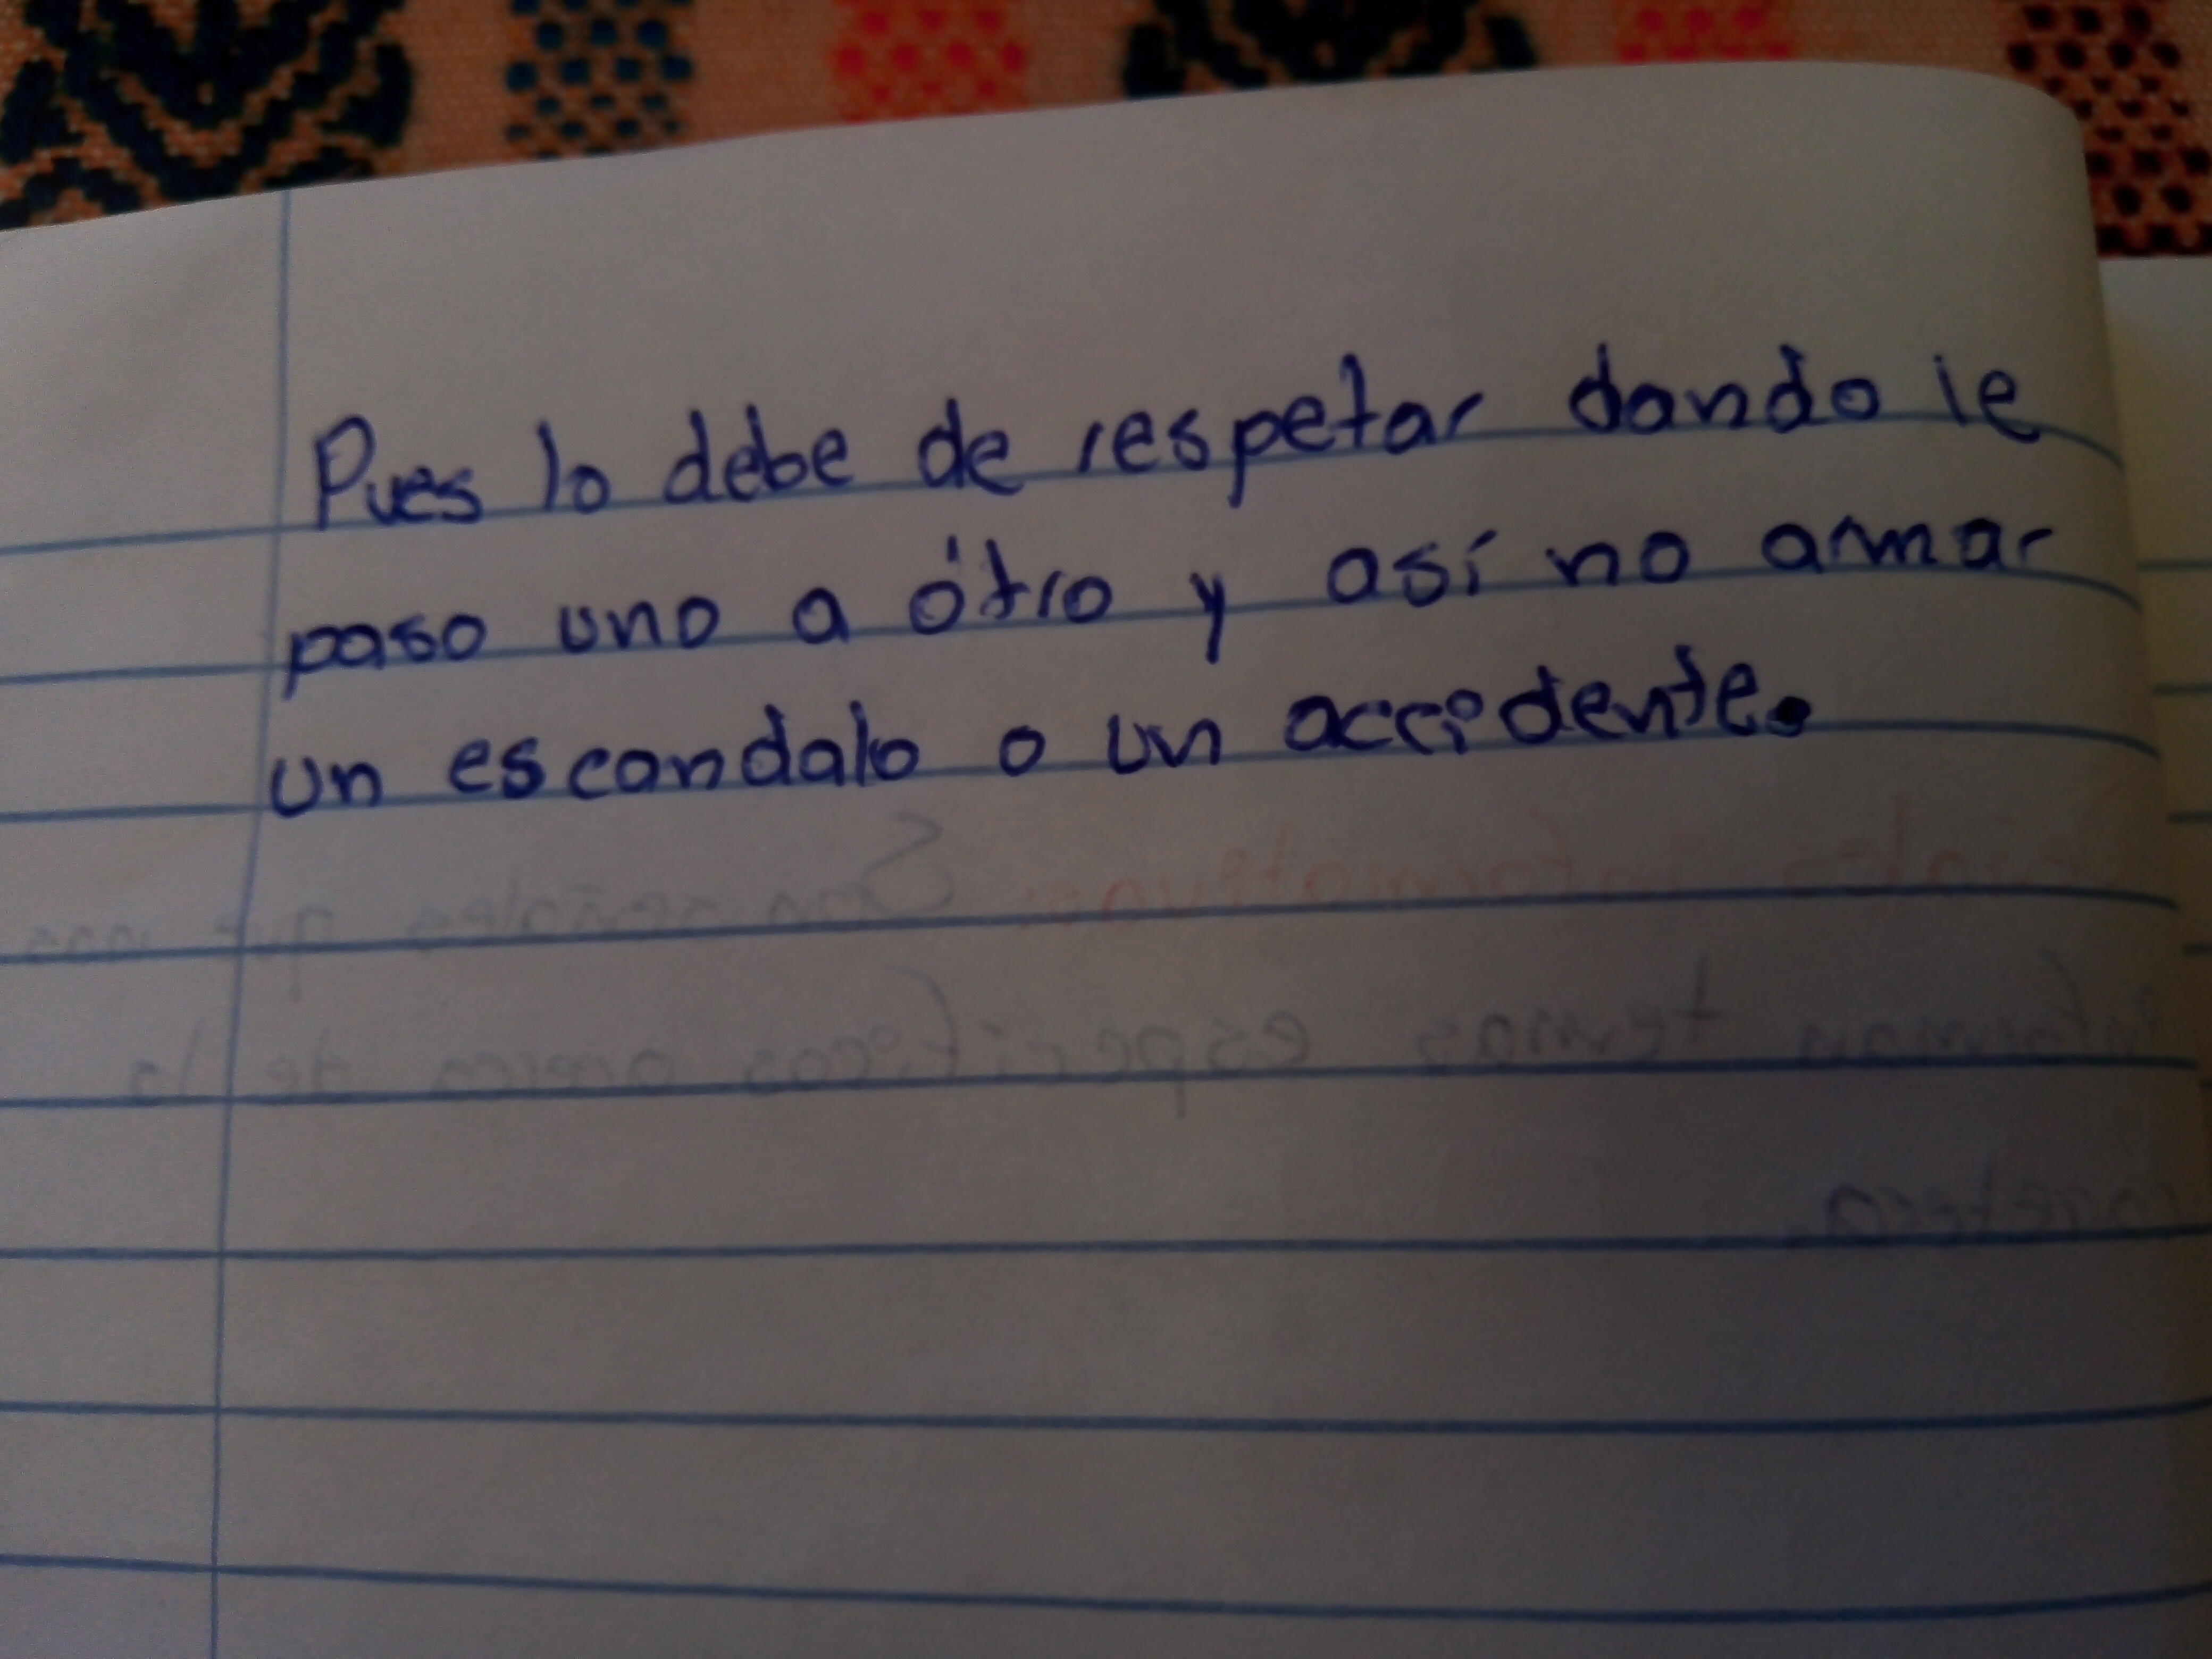 Pues lo debe de respetar dando le
paso uno a ótro y así no armar
un escandalo o un accidente.